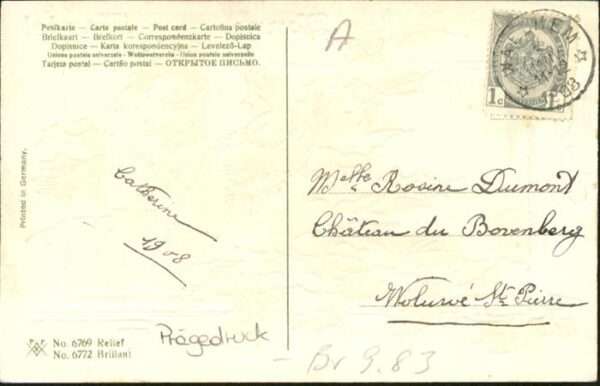 Postkarte – Carte postale – Post card – Cartolina postale
Briefkaart – Brefkort – Correspondenzkarte – Dopisnica
Dopisnice – Karta korespondencyjna – Levelező-Lap
Unione postale universale – Weltpostverein – Union postale universelle
Tarjeta postal – Cartão postal – ОТКРЫТОЕ ПИСЬМО.
A
1 c
Printed in Germany.
Catherine
1908
Melle Rosine Dumont
Château du Bovenberg
Woluwé St Pierre
No. 6769 Relief
No. 6772 Brillant
Prägedruck
Br 9.83